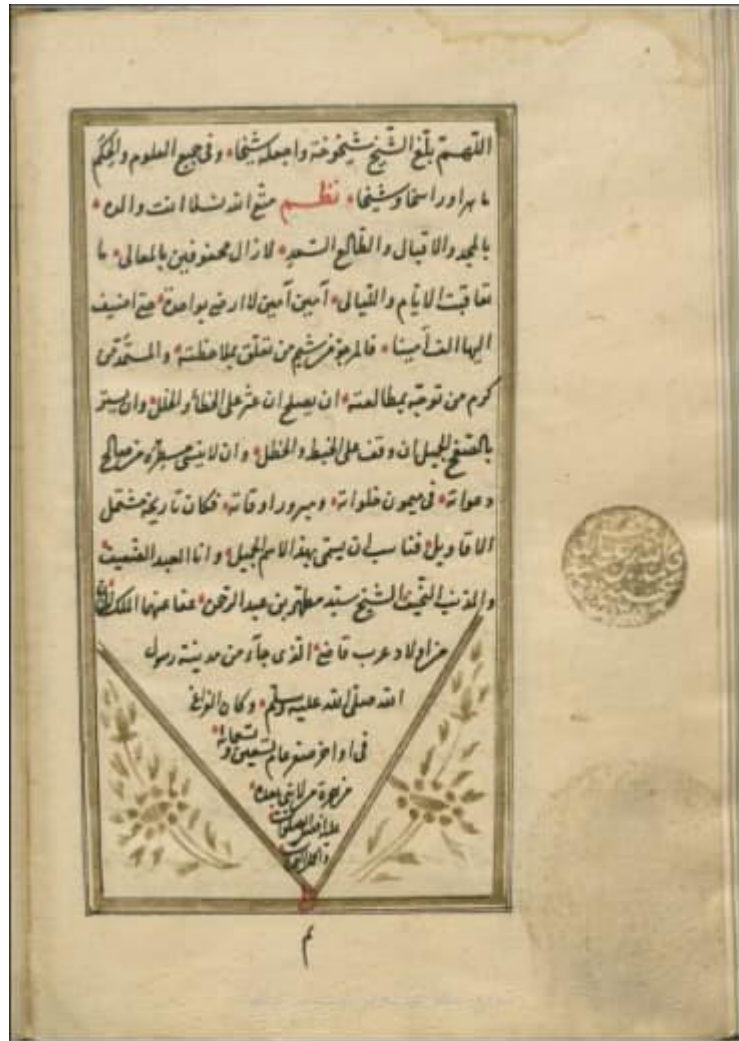 اللهم بلّغ الشيخ شيخوخة واجعله شيخا وفى جميع العلوم والحكم
ماهرا وراسخا وشيخا نظم متع الله نسلا انت والده
بالمجد والاقبال والطالع السعيد لازال محفوفين بالمعالى ما
تعاقبت الايام والليالى آمين آمين لا ارضى بواحدة حتى اضيف
اليها الف آمينا فالمرجو من شيم من تعلق بملاحظته والمستمد من
كرم من توجه بمطالعته ان يصلح ان عثر على الخطأ والخلل وان يستر
بالصفح الجميل ان وقف على الخبط والخطل وان لا ينسى مسطره من صالح
دعواته فى ميمون خلواته وميرور اوقاته فكان تاريخه مشتمل
الاقاويل فناسب ان يسمى بهذا الاسم الجميل وانا العبد الضعيف
والمذنب النحيف الشيخ سيد مطهر بن عبد الرحمن عفا عنهما الملك
من اولاد عرب قاضى الذى جاء من مدينة رسول
الله صلى الله عليه وسلم وكان الفراغ
فى اواخر صفر عام تسعين وتسعمائة
من هجرة من لا نبى بعده
عليه افضل الصلوات
م